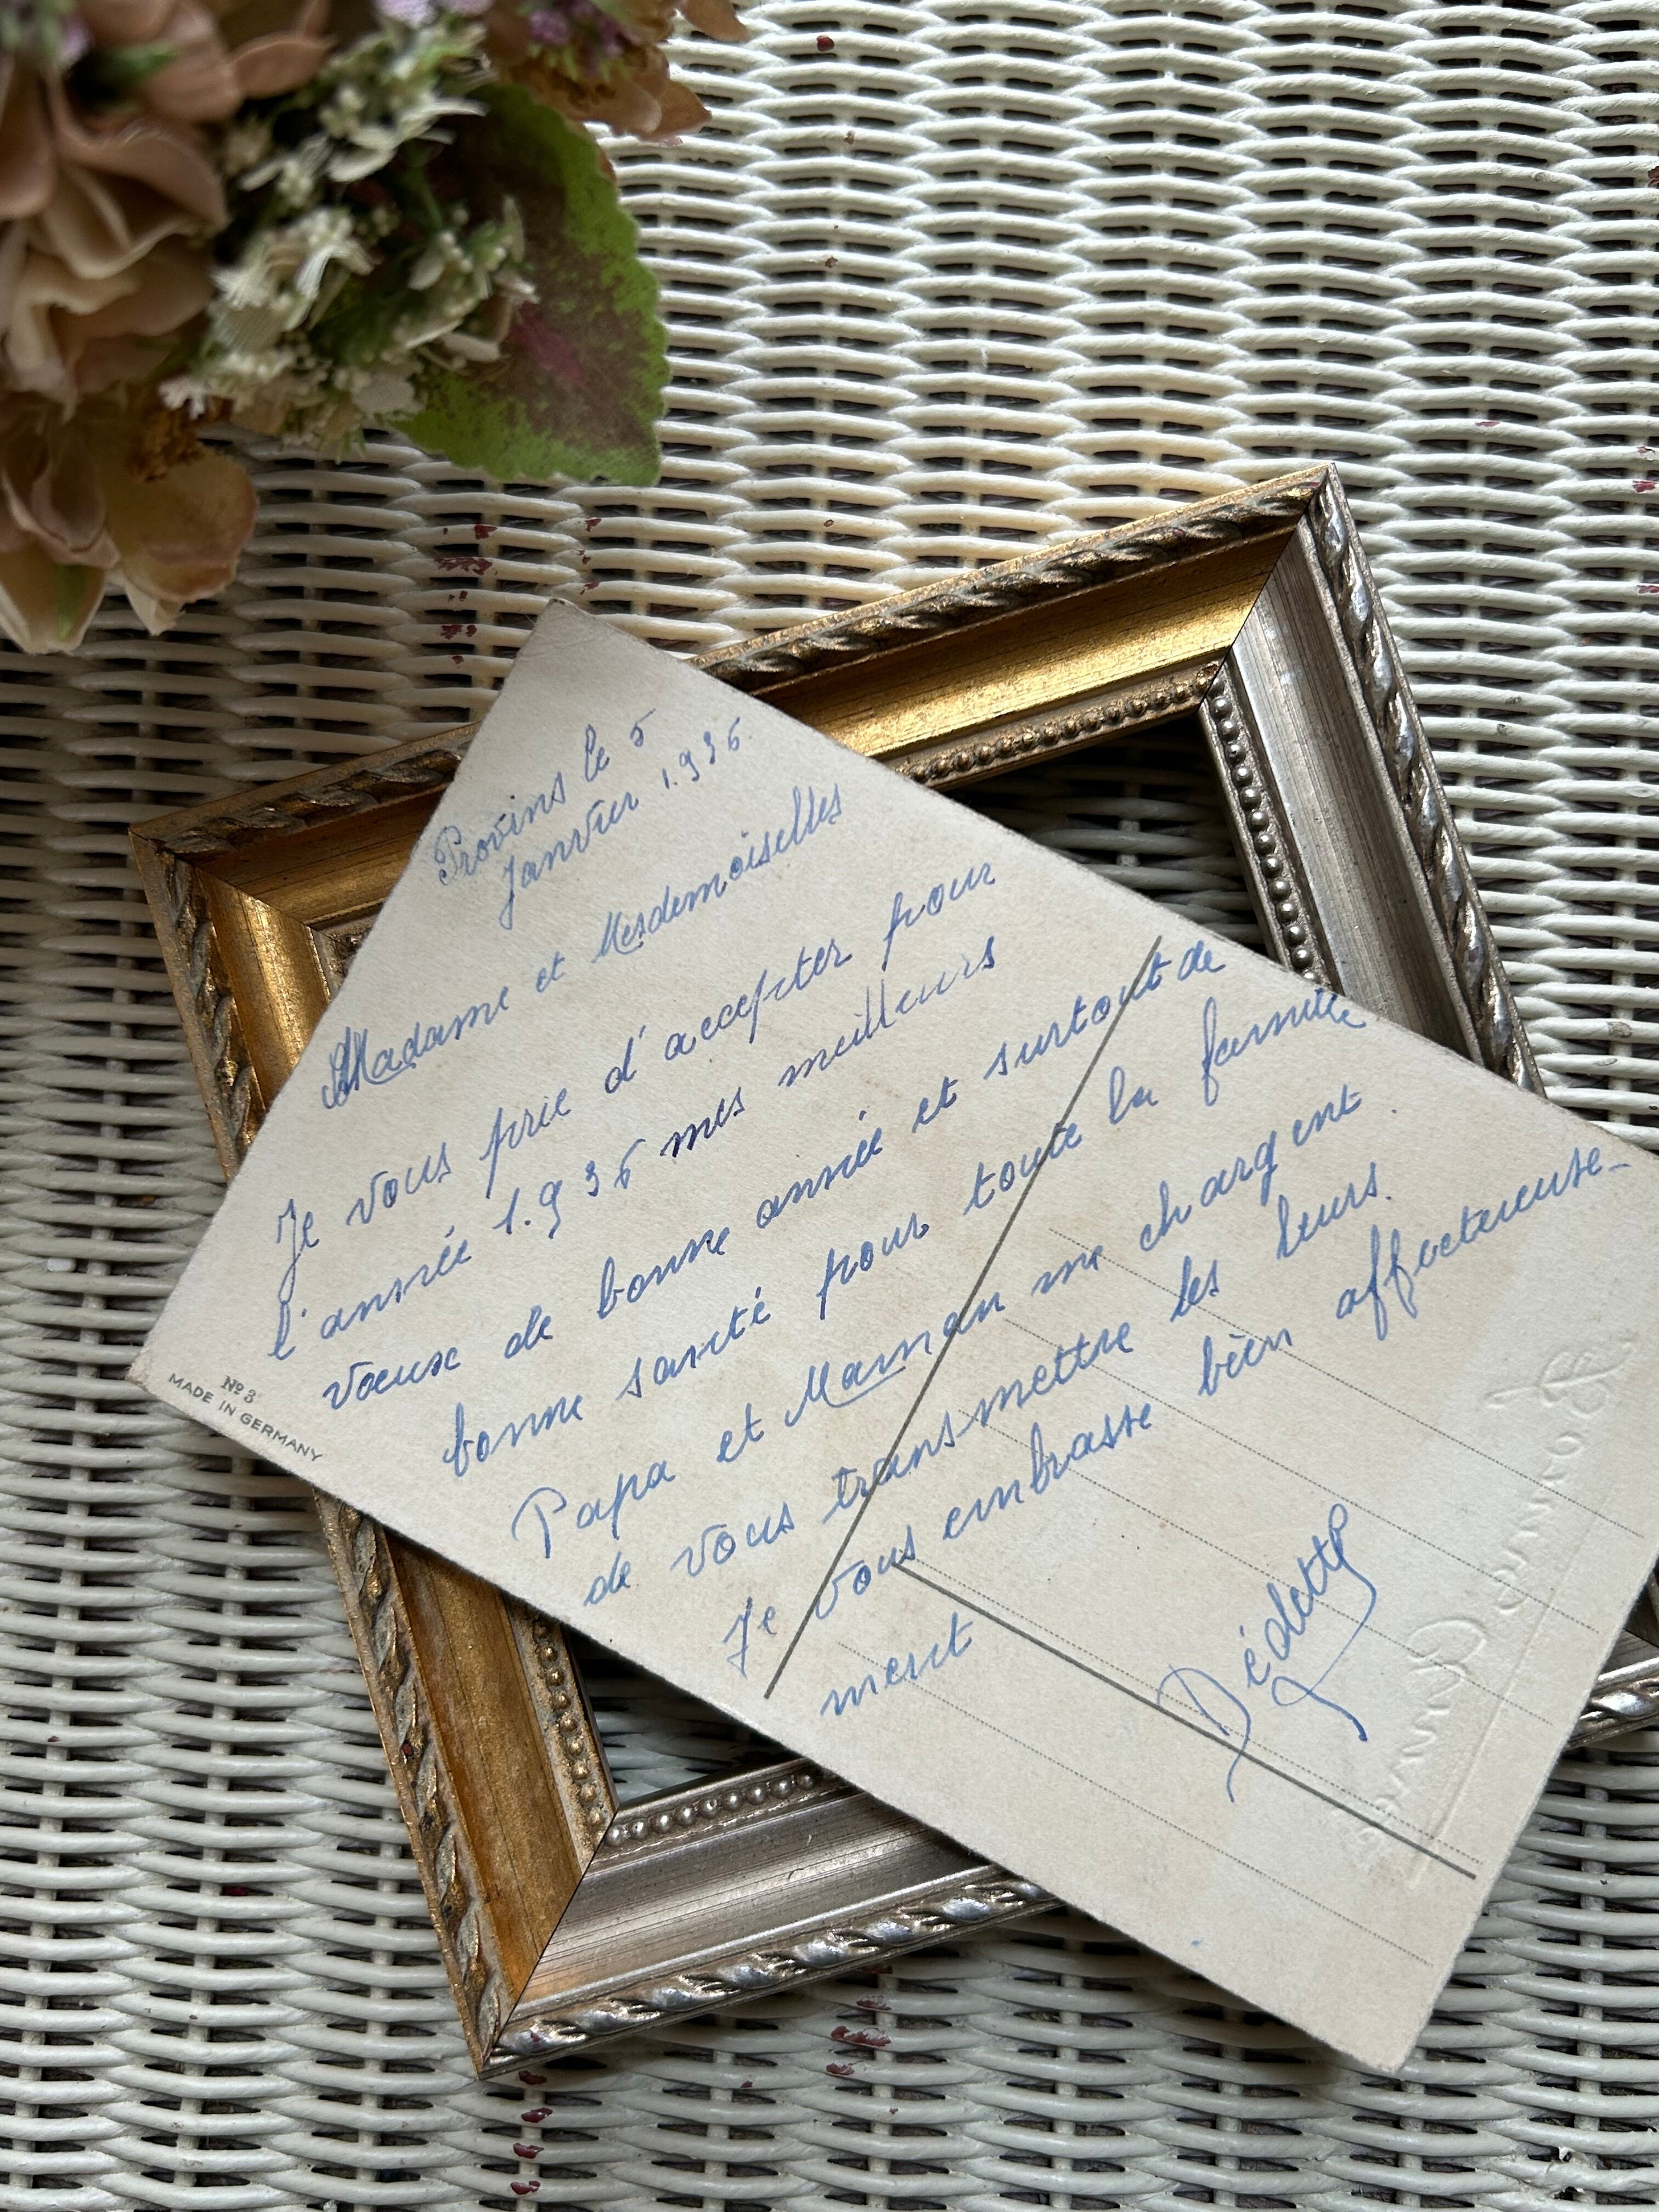 Provins le 5
Janvier 1.936.
Madame et Mesdemoiselles
Je vous prie d'accepter pour
l'année 1.936 mes meilleurs
voeux de bonne année et surtout de
bonne santé pour toute la famille
Papa et Maman me chargent.
de vous transmettre les leurs.
Je vous embrasse bien affectueuse-
ment
Dédette
Nº 3
MADE IN GERMANY